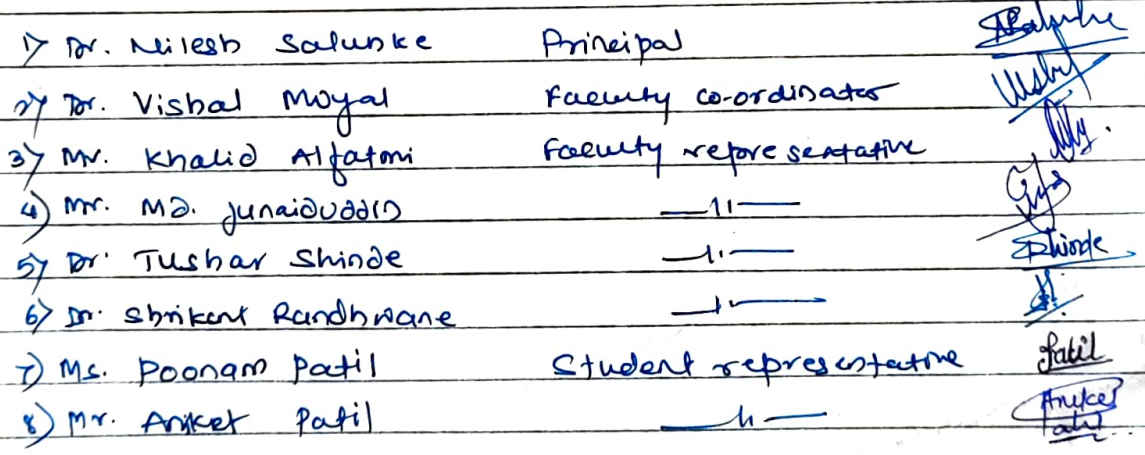 1) Dr. Nilesh Salunke Principal
2) Dr. Vishal Moyal Faculty co-ordinator
3) Mr. Khalid Alfatmi Faculty representative
4) Mr. Md. Junaiduddin —11—
5) Dr. Tushar Shinde —11— Shinde
6) Dr. Shrikant Randhwane —11—
7) Ms. Poonam Patil Student representative Patil
8) Mr. Aniket Patil —11— Aniket
Patil